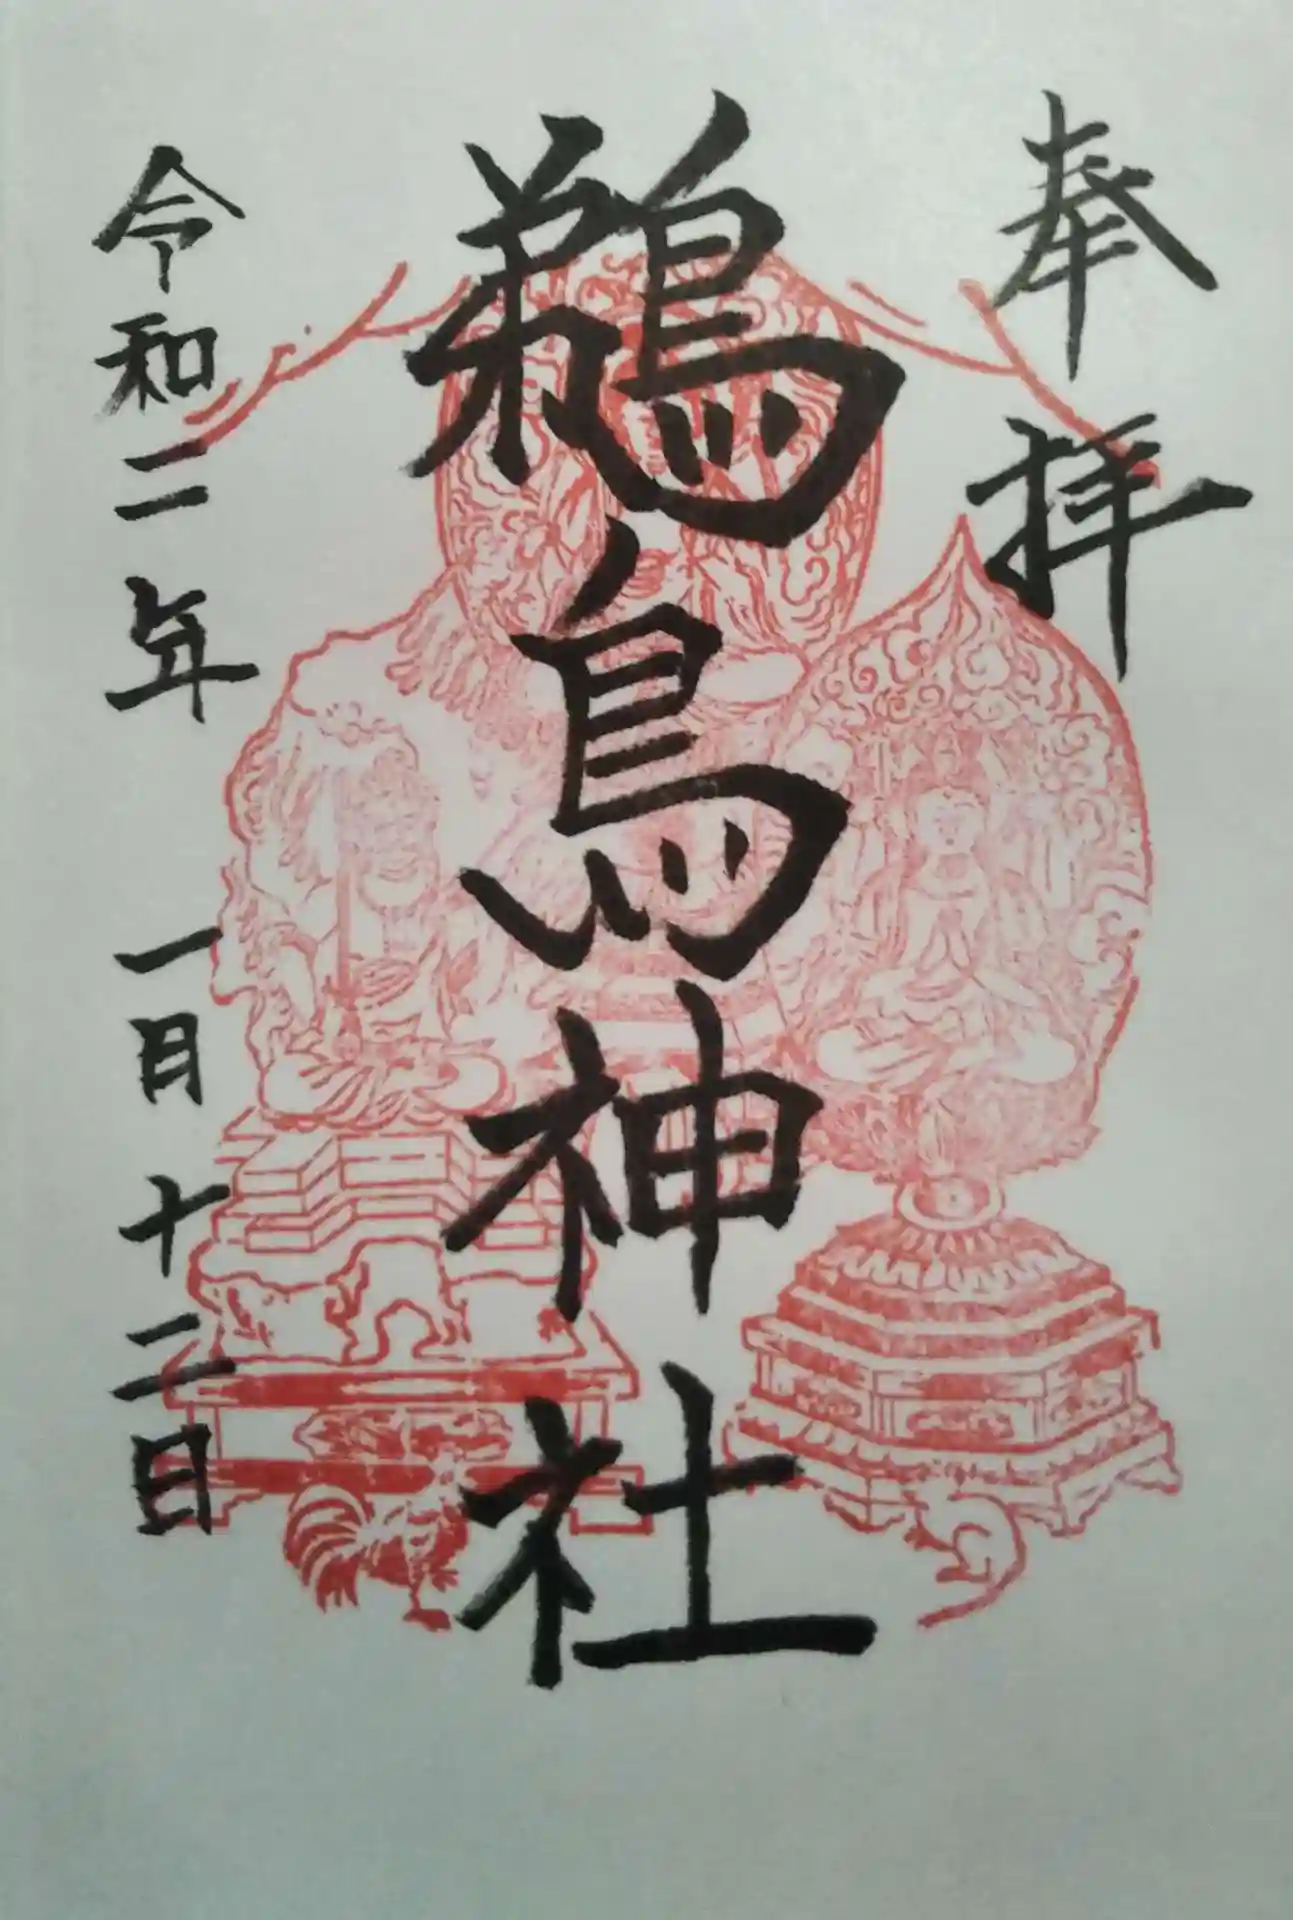 奉拝
鵜鳥神社
令和二年一月十二日